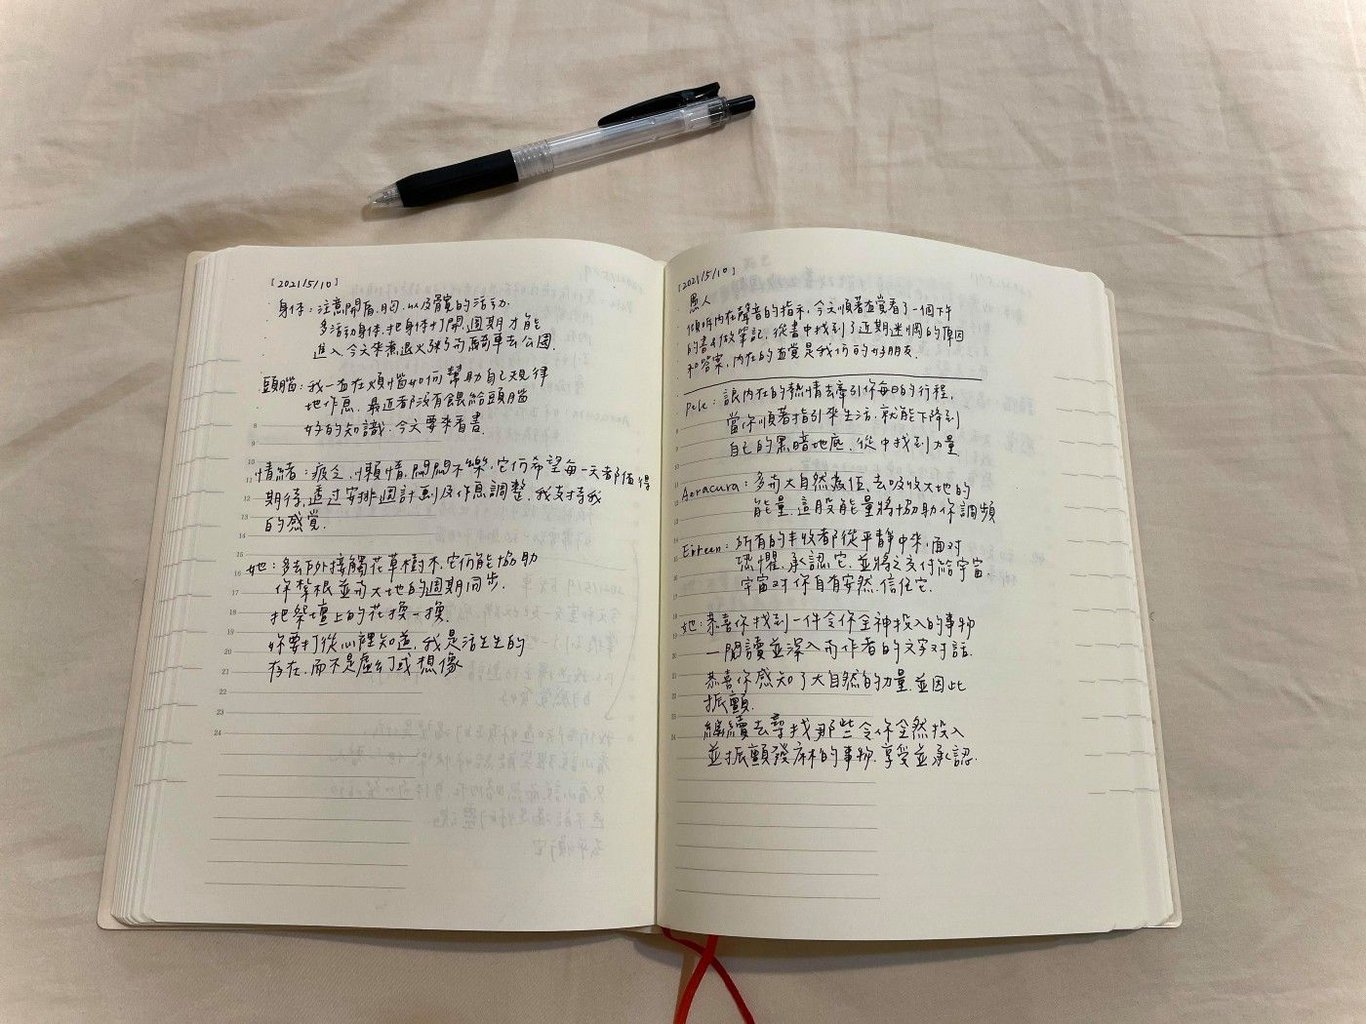 [2021/5/10]
身体：注意開肩、胸、以及髖的活動.
多活動身体,把身体打開,週期才能
進入,今天來煮退火粥,而騎車去公園.
頭腦：我一直在煩惱如何幫助自己規律
地作息. 最近都沒有餵給頭腦
好的知識. 今天要來看書.
情緒：疲乏、懶惰、悶悶不樂,它们希望每一天都值得
期待,透过安排週計画及作息調整,我支持我
的感覚.
她：多去戶外接觸花草樹木,它们能協助
你紮根並与大地的週期同步.
把祭壇上的花換一換.
妳要打從心裡知道,我是活生生的
存在,而不是虛幻或想像
8
9
10
11
12
13
14
15
16
17
18
19
20
21
22
23
24
[2021/5/10]
愚人
傾听内在聲音的指示,今天順著直覚看了一個下午
的書&做筆記,從書中找到了近期迷惘的原因
和答案,内在的直覚是我们的好朋友.
Pele：讓内在的熱情去牽引你每日的行程,
當你順著指引來生活,就能下降到
自己的黑暗地底,從中找到力量
Aeracura：多与大自然為伍,去吸收大地的
能量,這股能量將協助你調頻
Eireen：所有的丰收都從平静中來,面对
恐懼,承認它,並將之交付給宇宙
宇宙对你自有安然,信任它.
她：恭喜你找到一件令你全神投入的事物
—閱讀並深入而作者的文字对話.
恭喜你感知了大自然的力量,並因此
振顫.
繼續去尋找那些令你全然投入
並振顫發麻的事物.享受並承認.